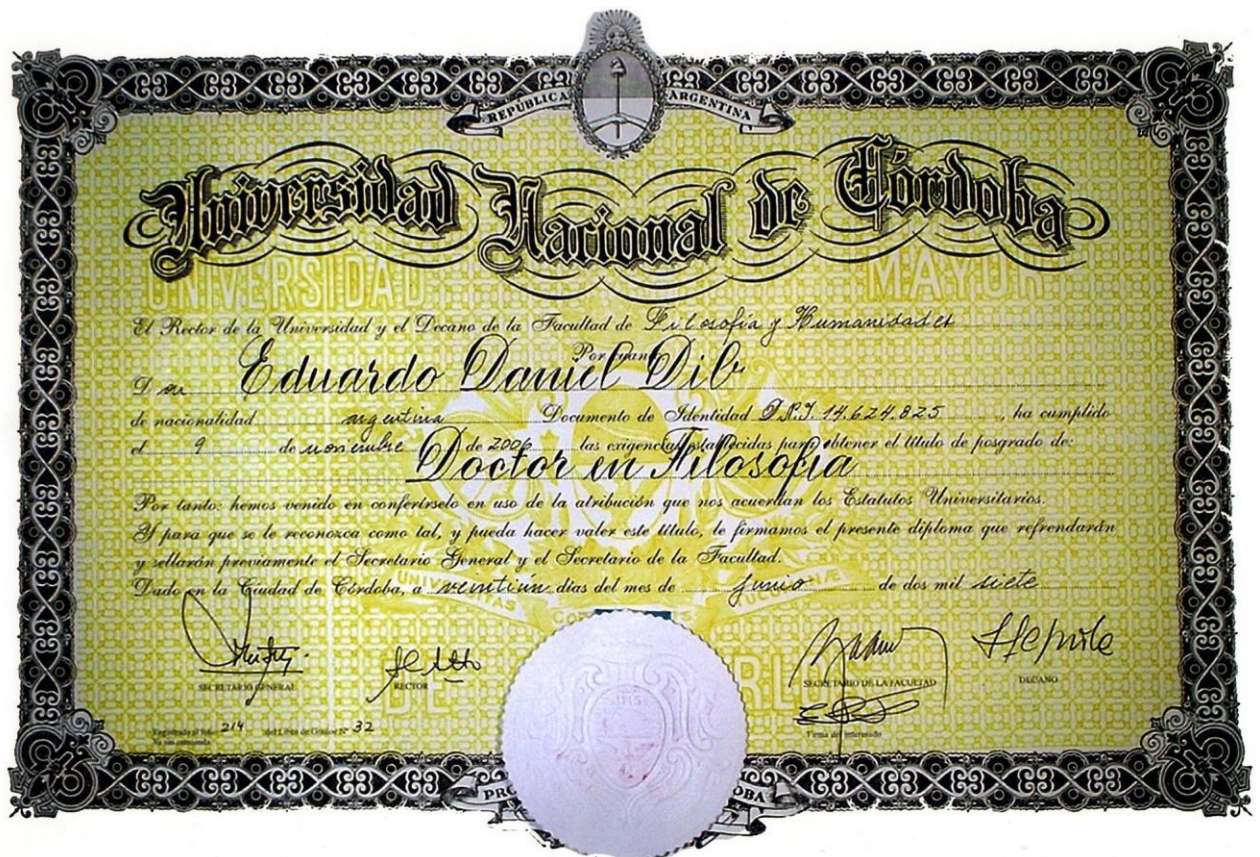 REPÚBLICA ARGENTINA
Universidad Nacional de Córdoba
UNIVERSIDAD MAYOR
El Rector de la Universidad y el Decano de la Facultad de Filosofía y Humanidades
Por cuanto
Don Eduardo Daniel Dib
de nacionalidad argentina Documento de Identidad D.N.I. 14.624.825, ha cumplido
el 9 de noviembre de 2006 las exigencias establecidas para obtener el título de posgrado de:
Doctor en Filosofía
Por tanto: hemos venido en conferírselo en uso de la atribución que nos acuerdan los Estatutos Universitarios.
Y para que se le reconozca como tal, y pueda hacer valer este título, le firmamos el presente diploma que refrendarán
y sellarán previamente el Secretario General y el Secretario de la Facultad.
Dado en la Ciudad de Córdoba, a veintiún días del mes de junio de dos mil siete
SECRETARIO GENERAL
RECTOR
SECRETARIO DE LA FACULTAD
DECANO
Registrado al folio 214 del Libro de Grados Nº 32
Firma del interesado